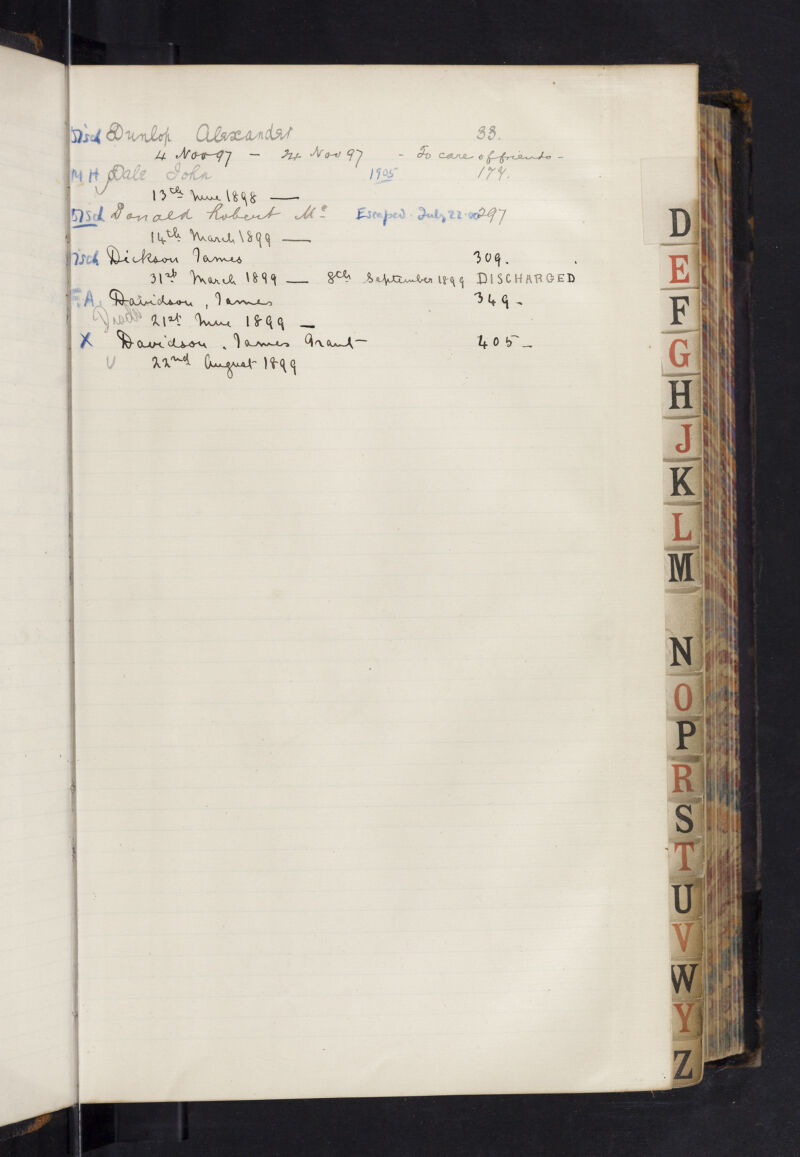 Disch Dunlop Alexander 33.
4 Nov 97 — 24 Nov 97 - To care of friends -
M H Dale John 1905 174.
13th June 1898 —
Disch Donald Robert Mc Escaped July 22·00 297
14th March 1899 —
Disch Dickson James 309.
31st March 1899 — 8th September 1899 DISCHARGED
F.A. Davidson, James 349 -
21st June 1899 —
X Davidson, James Grant 405 -
22nd August 1899
D
E
F
G
H
J
K
L
M
N
O
P
R
S
T
U
V
W
Y
Z